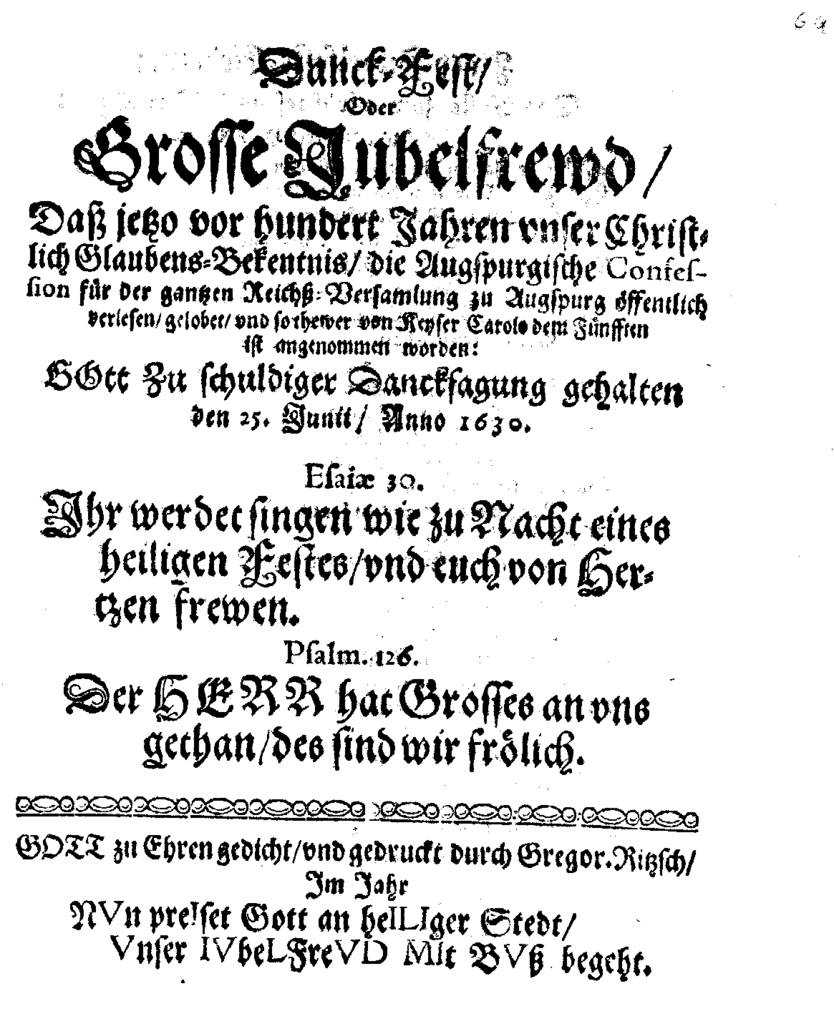 69
Danck-Fest/
Oder
Grosse Jubelfrewd/
Daß jetzo vor hundert Jahren vnser Christ-
lich Glaubens-Bekentnis/ die Augspurgische Confes-
sion für der gantzen Reichß-Versamlung zu Augspurg öffentlich
verlesen/ gelobet/ vnd so thewer von Keyser Carolo dem Fünfften
ist angenommen worden:
GOtt Zu schuldiger Dancksagung gehalten
den 25. Junii/ Anno 1630.
Esaiæ 30.
Ihr werdet singen wie zu Nacht eines
heiligen Festes/ vnd euch von Her-
tzen frewen.
Psalm. 126.
Der HERR hat Grosses an vns
gethan/ des sind wir frölich.
GOTT zu Ehren gedicht/ vnd gedruckt durch Gregor. Ritzsch/
Im Jahr
NVn preIset Gott an heILIger Stedt/
Vnser IVbeLFreVD MIt BVß begeht.